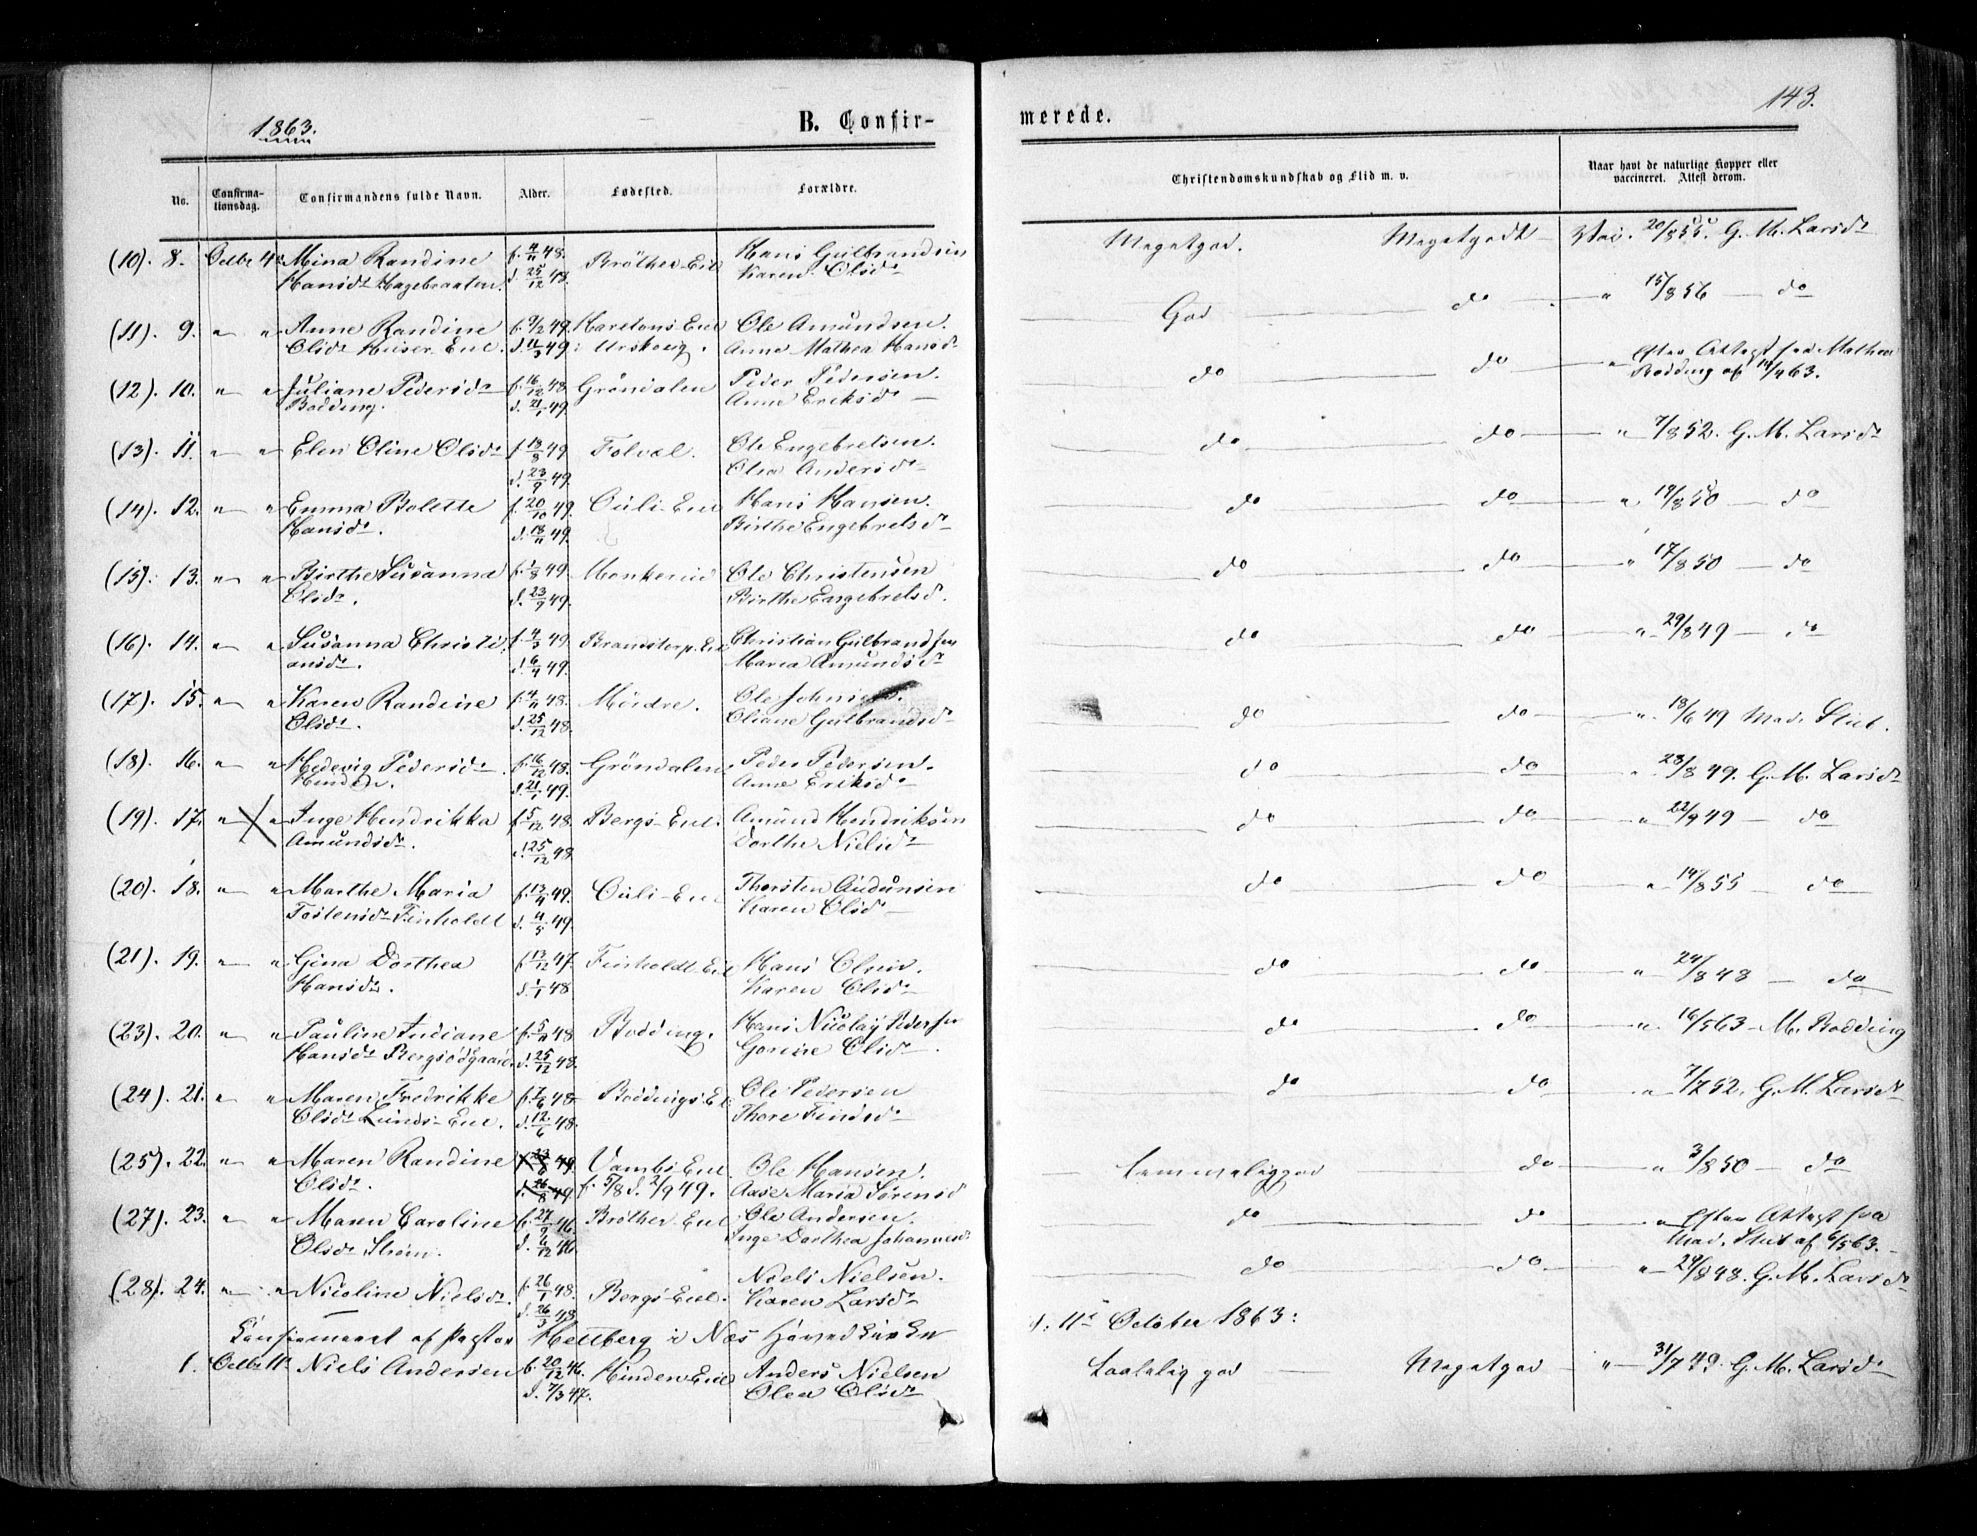 143.
1863.
B. Confir-
merede.
No.
Confirma-
tionsdag.
Confirmandens fulde Navn.
Alder.
Fødested.
Forældre.
Christendomskundskab og Flid m. v.
Naar havt de naturlige Kopper eller
vaccineret. Attest derom.
(10). 8. Octbr 4de Mina Randine f. 4/11 48. Brøther-Eie Hans Gulbrandsen Megetgod. Megetgodt Vac. 20/8 55. G. M. Larsdr
Hansdr Hagebraaten. d. 25/12 48. Karen Olsdr
(11). 9. " " Anne Randine f. 9/2 49. Haretons-Eie Ole Amundsen. God do " 15/8 56 — do
Olsdr Huser-Eie. d. 11/3 49. i Urskoug. Anne Mathea Hansdr
(12). 10. " " Juliane Pedersdr f. 16/12 48. Grøndalen Peder Pedersen. do do " Efter Attest fra Mathea
Bodding. d. 21/1 49. Anne Eriksdr Bodding af 14/4 63.
(13). 11. " " Elen Oline Olsdr f. 13/8 49. Folval. Ole Engebretsen. do do " 7/8 52. G. M. Larsdr
d. 23/9 49. Olea Andersdr
(14). 12. " " Emma Bolette f. 20/10 49. Ouli-Eie Hans Hansen. do do " 19/8 50 — do
Hansdr. d. 18/11 49. Birthe Engebretsdr
(15). 13. " " Birthe Susanna f. 1/8 49. Monkerud Ole Christensen do do " 17/8 50 — do
Olsdr. d. 23/9 49. Birthe Engebretsd.
(16). 14. " " Susanna Christi- f. 4/3 49. Branstorp-Eie Christian Gulbrandsen do do " 29/8 49 — do
ansdr. d. 6/4 49. Maria Amundsdr
(17). 15. " " Karen Randine f. 4/11 48. Mørdre. Ole Johnsen. do do " 13/6 49 Mad. Stub.
Olsdr. d. 25/12 48. Oliane Gulbrandsdr
(18). 16. " " Hedevig Pedersdr f. 16/12 48. Grøndalen Peder Pedersen. do do " 28/8 49. G. M. Larsdr
Hinden. d. 21/1 49. Anne Eriksdr
(19). 17. " " Inge Hendrikka f. 5/12 48. Bergs-Eie. Amund Hendriksen do do " 22/9 49 — do
Amundsdr. d. 25/12 48 Dorthe Nielsdr
(20). 18. " " Marthe Maria f. 13/4 49. Ouli-Eie Thorsten Audunsen do do " 14/8 55 — do
Tostensdr Finholdt d. 4/5 49. Karen Olsdr
(21). 19. " " Gina Dorthea f. 13/12 47. Finholdt-Eie Hans Olsen. do do " 24/8 48 — do
Hansdr. d. 1/1 48 Karen Olsdr
(23). 20. " " Pauline Indiane f. 5/11 48 Bodding. Hans Nicolay Pedersen do do " 16/5 63 — M. Bodding
Hansdr Bergsødgaard. d. 25/12 48. Gorine Olsdr.
(24). 21. " " Maren Fredrikke f. 7/6 48 Boddings-Eie Ole Pedersen do do " 7/7 52. G. M. Larsdr
Olsdr Lunds-Eie. d. 12/6 48. Thore Findsdr
(25). 22. " " Maren Randine Vambs-Eie Ole Hansen. temmeliggod do " 3/8 50 — do
Olsdr. f. 5/8 d. 2/9 49. Aase Maria Sørensd
(27). 23. " " Maren Caroline f. 27/9 46 Brøther-Eie Ole Andersen. do do " Efter Attest fra
Olsdr Strøm. d. 6/12 46 Inge Dorthea Johannesdr Mad. Stub af 6/5 63.
(28). 24. " " Nicoline Nielsdr. f. 26/1 48. Bergs-Eie. Niels Nielsen. do do " 29/8 48. G. M. Larsdr
d. 26/3 48 Karen Larsdr
Confirmeret af Pastor Hettberg i Næs Hovedkirke d. 11te October 1863:
1. Octbr 11te Niels Andersen f. 20/12 46. Hinden-Eie Anders Nielsen taalelig god Megetgod " 31/7 49. G. M. Larsdr
d. 7/3 47. Olea Olsdr